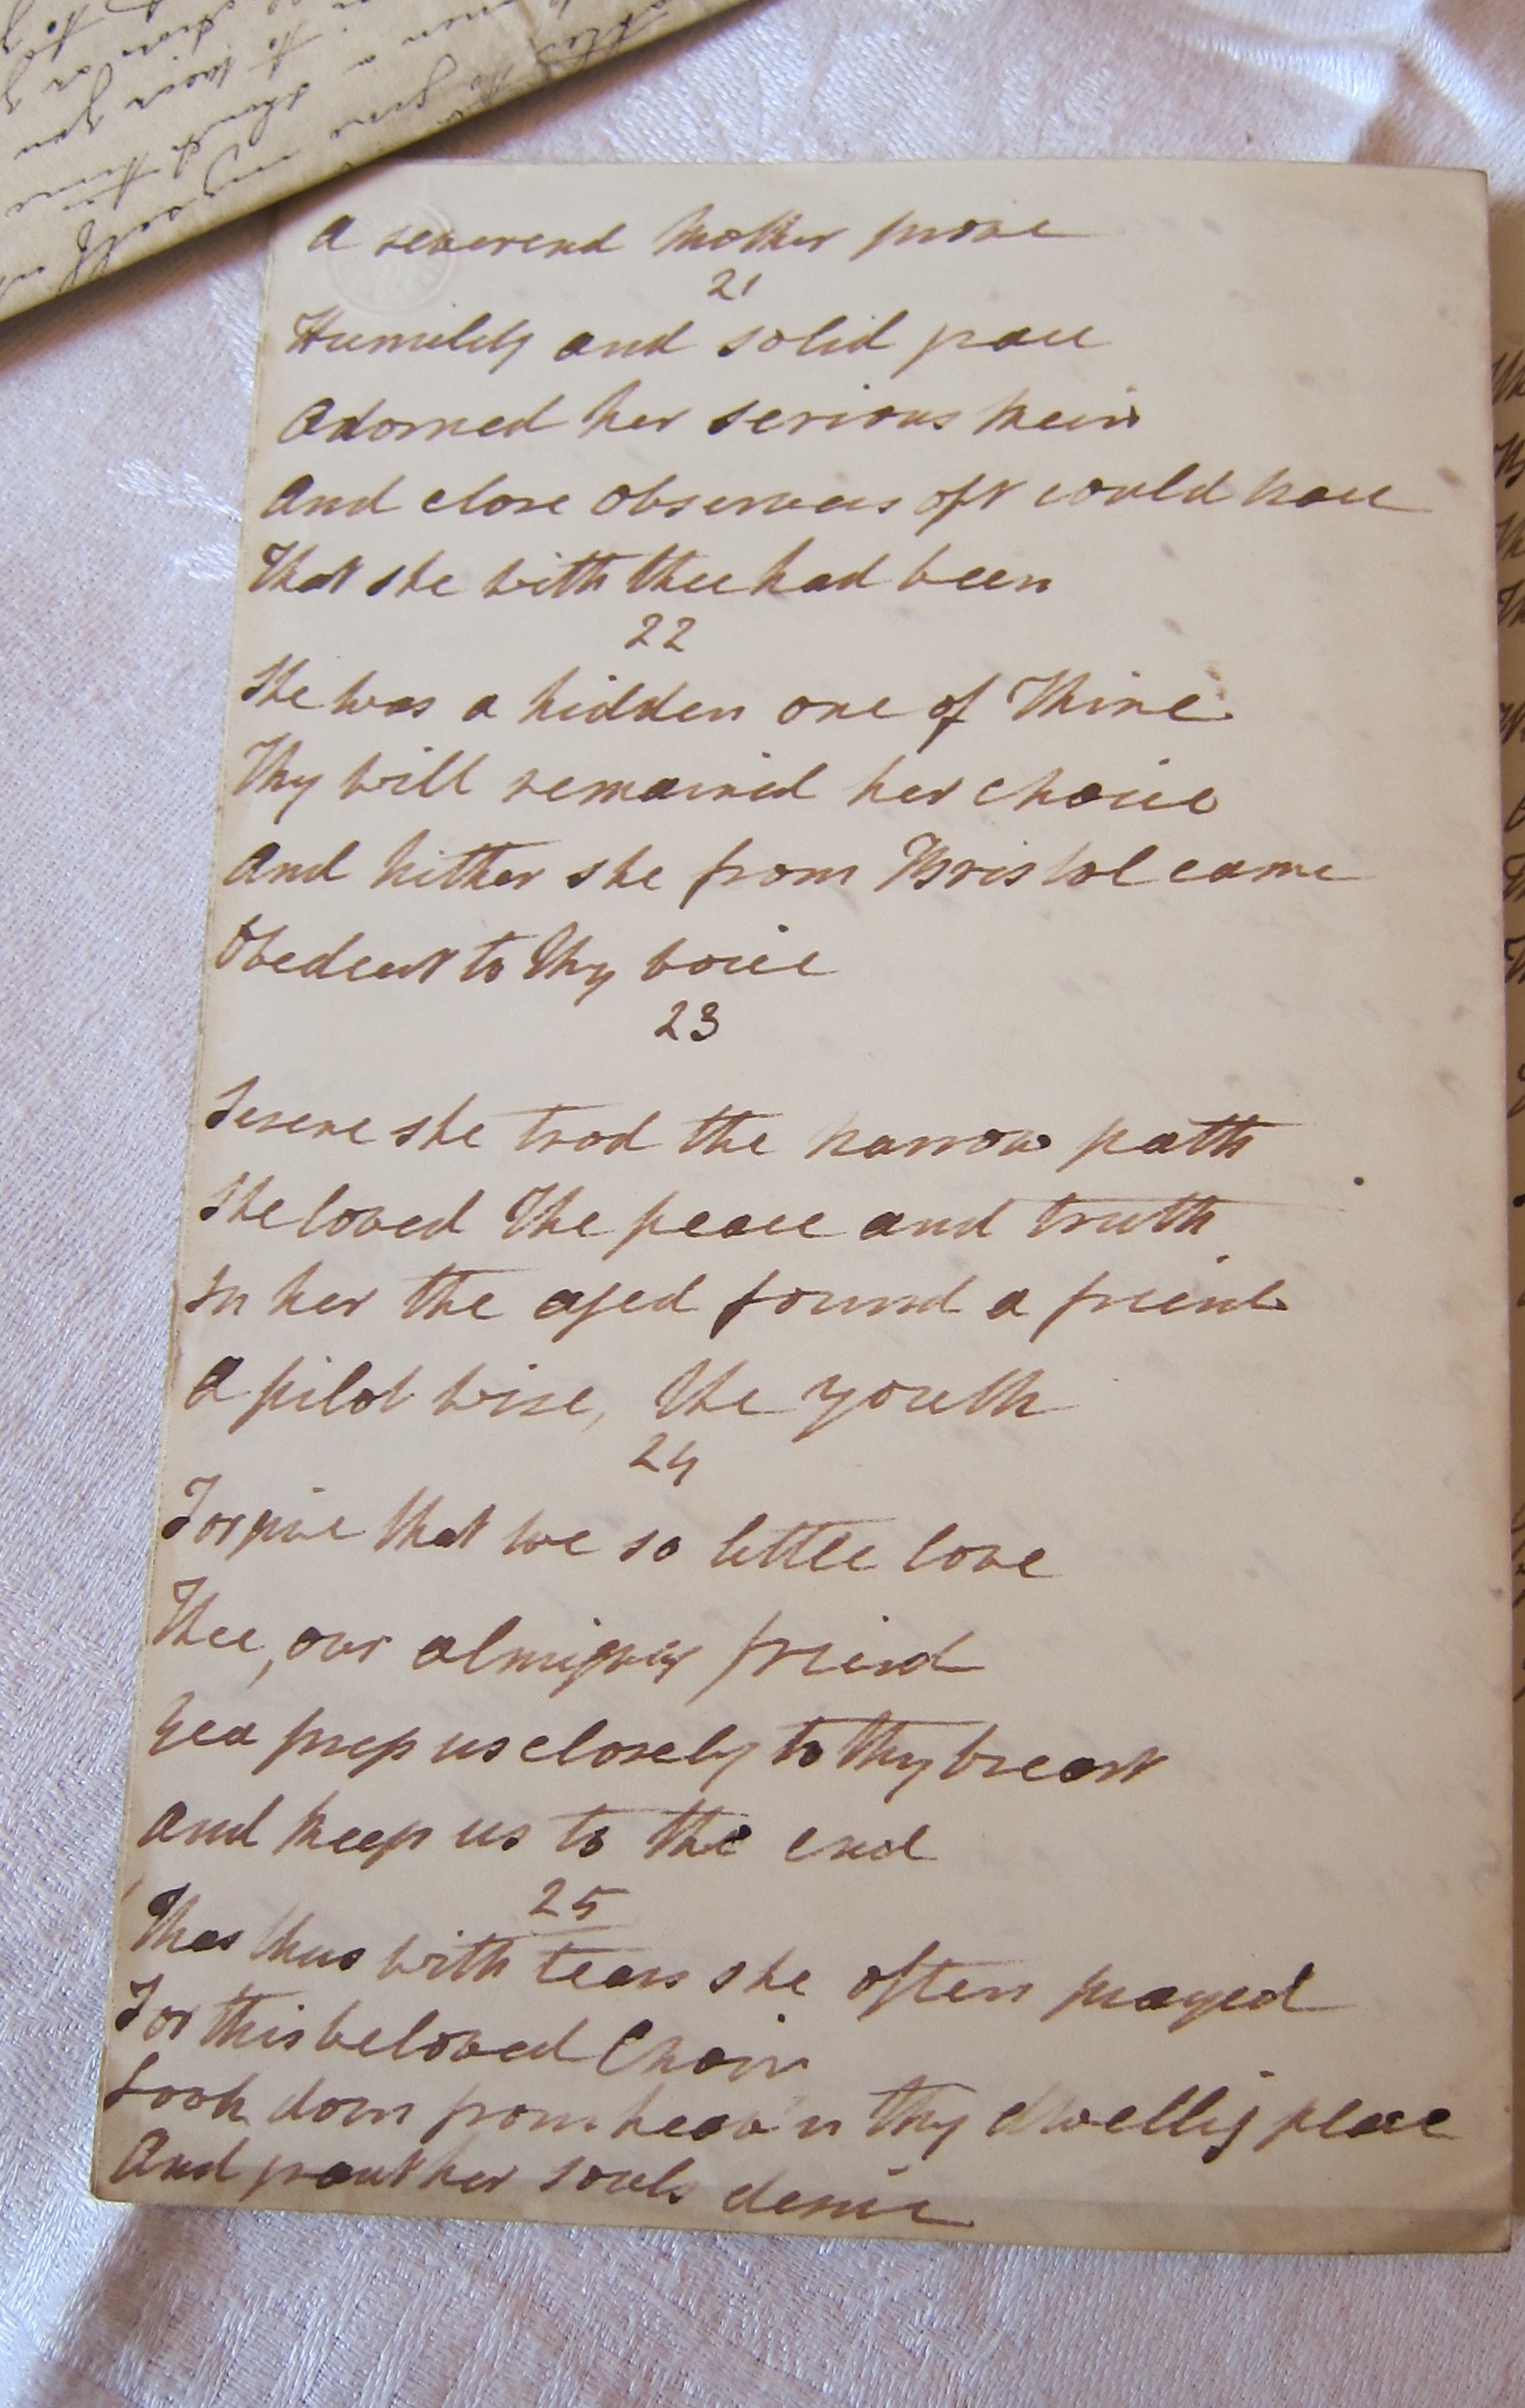 A reverend Mother prove
21
Humility and solid pace
Adorned her serious mein
And close observers oft could trace
That she with thee had been
22
She was a hidden one of Thine
Thy will remained her choice
And hither she from Bristol came
Obedient to thy voice
23
Serene she trod the narrow path
She loved the peace and truth
In her the aged found a friend
A pilot wise, the youth
24
Forgive that we so little love
Thee, our almighty friend
Yea press us closely to thy breast
And keep us to the end
25
Thus with tears she often prayed
For this beloved Choir
Look down from heav'n thy dwelling place
And grant her souls desire
to
a short time
myself